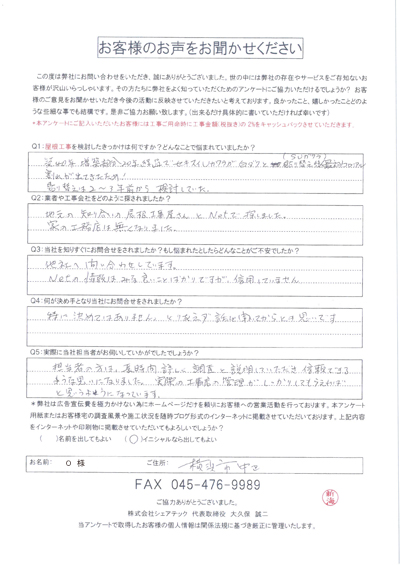 お客様のお声をお聞かせください
この度は弊社にお問い合わせをいただき、誠にありがとうございました。世の中には弊社の存在やサービスをご存知ないお
客様が沢山いらっしゃいます。その方たちに弊社をよく知っていただくためのアンケートにご協力いただけるでしょうか? お客
様のご意見をお聞かせいただき今後の活動に反映させていただきたいと考えております。良かったこと、嬉しかったことどのよ
うな些細な事でも結構です。是非ご協力お願い致します。(出来るだけ具体的に書いていただければ幸いです)
*本アンケートにご記入いただいたお客様には工事ご用命時に工事金額(税抜き)の2%をキャッシュバックさせていただきます。
Q1:屋根工事を検討したきっかけは何ですか?どんなことで悩まれていましたか?
割れが出てきたため!
Q2:業者や工事会社をどのように探されましたか?
地元の知り合いの屋根工事屋さんとNetで探しました。
家の工務店は無くなりました。
Q3:当社を知りすぐにお問合せをされましたか?もし悩まれたとしたらどんなことがご不安でしたか?
他社へ問い合わせしています。
Netの情報はみな良いことばかりですが、信用していません
Q4:何が決め手となり当社にお問合せをされましたか?
特に決めてはありません。とりあえず話を聞いてからとは思いです
Q5:実際に当社担当者がお伺いしていかがでしたでしょうか?
担当者の方は、長時間詳しく調査と説明していただき信頼できる
ような思いになりました。実際の工事店の管理がしっかりしてもらえれば
と思うようになっています。
*弊社は広告宣伝費を極力かけない為にホームページだけを頼りにお客様への営業活動を行っております。本アンケート
用紙またはお客様宅の調査風景や施工状況を随時ブログ形式のインターネットに掲載させていただいております。上記内容
をインターネットや印刷物に掲載させていただいてもよろしいでしょうか?
( )名前を出してもよい (○)イニシャルなら出してもよい
お名前: O 様 ご住所: 横浜市中区
FAX 045-476-9989
ご協力ありがとうございました。
株式会社シェアテック 代表取締役 大久保 誠二
当アンケートで取得したお客様の個人情報は関係法規に基づき厳正に管理いたします。
新海